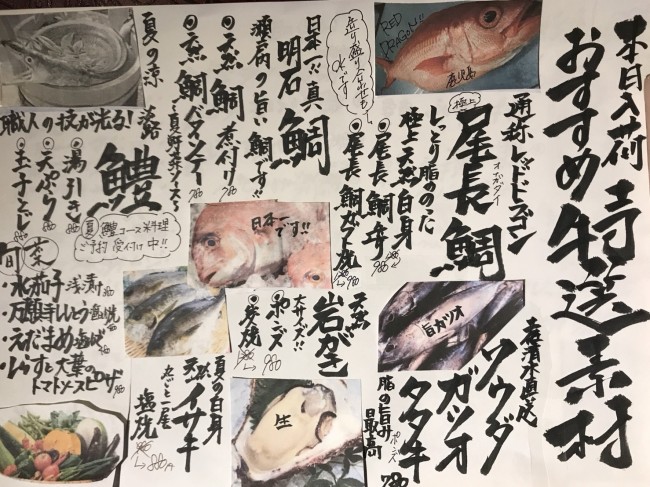 本日入荷
おすすめ
特選素材
RED DRAGON!!
鹿児島
通称レッドドラゴン
極上
尾長鯛
オナガダイ
しっとり脂ののった
極上天然白身
尾長鯛
尾長鯛カブト焼
造り盛り合せも
OKです
日本一!!真鯛
明石
瀬戸の旨い鯛です!!
天然鯛煮付け
天然鯛
日本一です!!
夏の涼
職人の技が光る!
淡路
鱧
湯引き
天ぷら
玉子とじ
夏鱧コース料理
ご予約受付け中!!
旬菜
水茄子浅漬け
万願寺ししとう塩焼
えだまめ塩焼
しらすと大葉の
トマトソースピザ
産清水直送
ソウダ
ガツオ
タタキ
ポンズ
脂の旨み
最高
780
旨カツオ
天然
岩がき
大サイズ!!
ポンズ
炭焼
980
生
夏の白身
天然イサキ
丸ごと一尾
塩焼